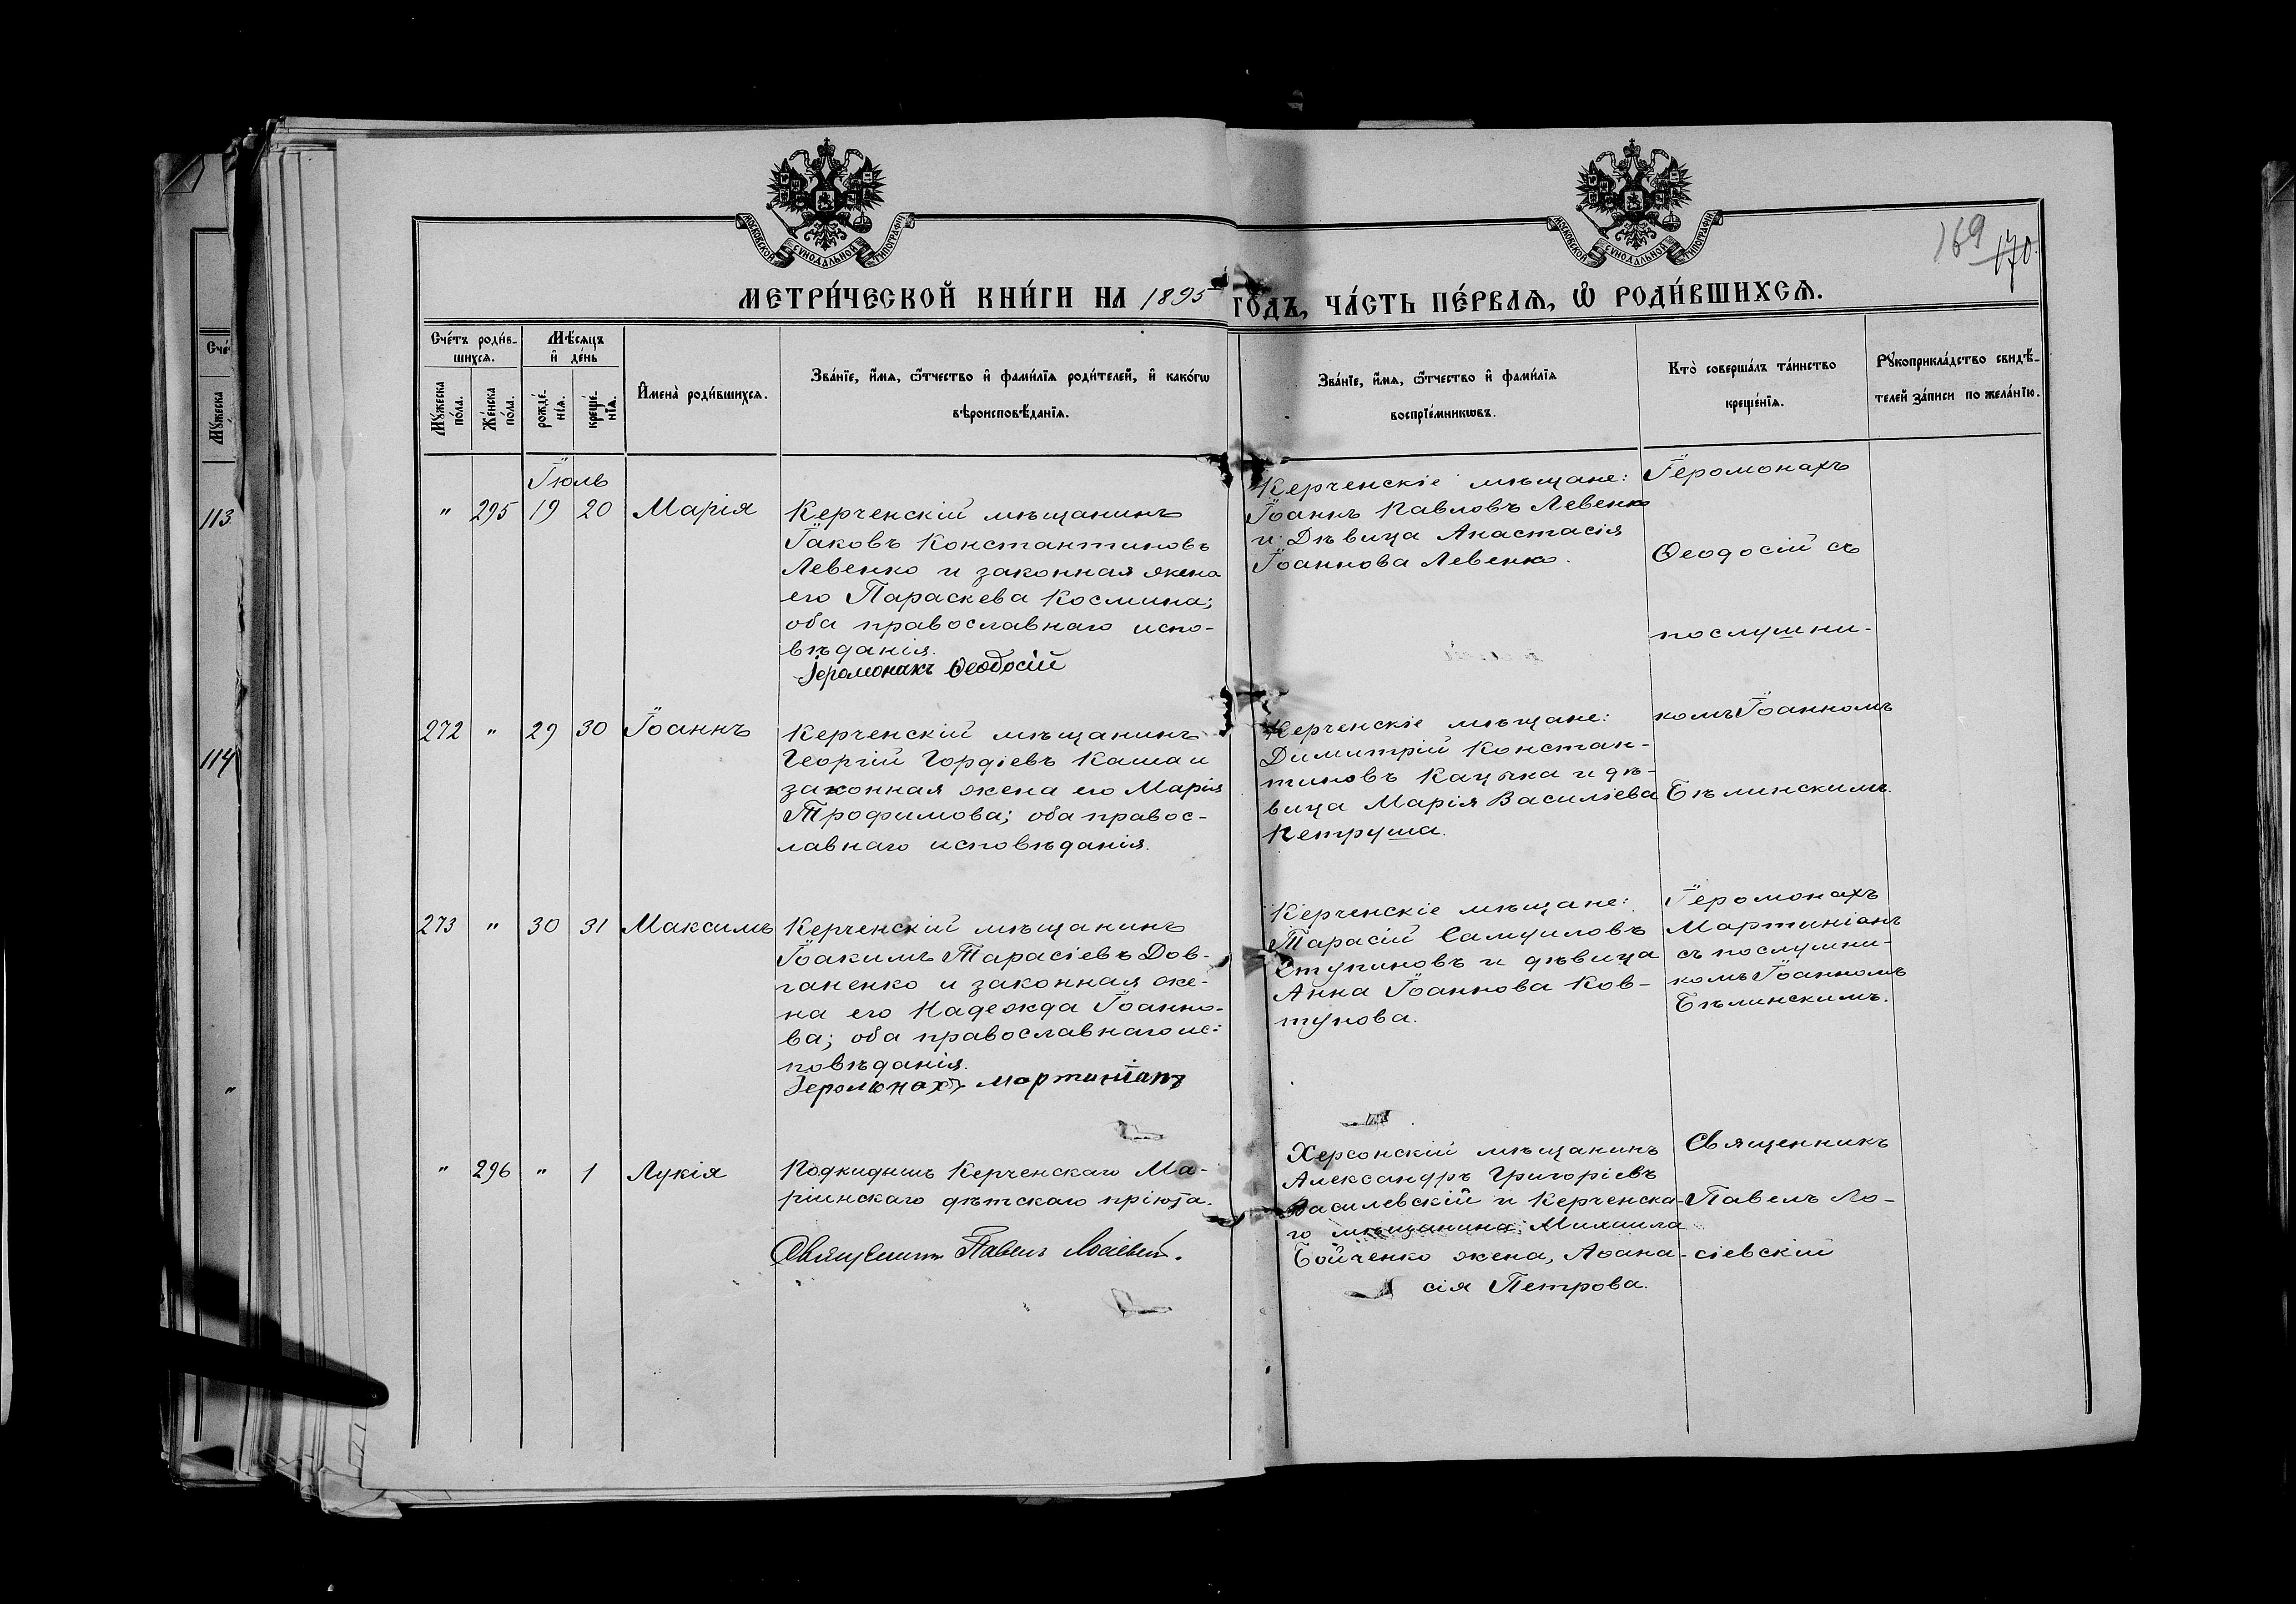 МОСКОВСКОЙ СѴНОДАЛЬНОЙ ТИПОГРАФІИ
МОСКОВСКОЙ СѴНОДАЛЬНОЙ ТИПОГРАФІИ
169 170.
МЕТРИ́ЧЕСКОЙ КНИ́ГИ НА 1895 ГО́ДЪ, ЧА́СТЬ ПЕ́РВАѦ, Ѽ РОДИ́ВШИХСѦ.
Сче́тъ роди́в-
шихсѧ.
Мꙋ́жеска по́ла.
Же́нска по́ла.
Мѣ́сяцъ
и҆ де́нь
рожде́-
нїѧ.
креще́-
нїѧ.
И҆мена̀ роди́вшихсѧ.
Зва́нїе, и҆́мѧ, ѻ҆́тчество и҆ фами́лїѧ роди́телей, и҆ како́гѡ
вѣроисповѣ́данїѧ.
Зва́нїе, и҆́мѧ, ѻ҆́тчество и҆ фами́лїѧ
воспрїе́мникѡвъ.
Кто̀ соверша́лъ та́инство
креще́нїѧ.
Рꙋкоприкла́дство свидѣ́-
телей за́писи по жела́нїю.
Сче́
Мꙋжеска
113
114
"
Їюль
" 295 19 20 Марія
Керченскій мѣщанинъ
Їаковъ Константиновъ
Левенко и законная жена
его Параскева Космина;
оба православнаго испо-
вѣданія.
Іеромонахъ Ѳеодосій
Керченскіе мѣщане:
Їоаннъ Павловъ Левенко
и дѣвица Анастасія
Їоаннова Левенко.
Їеромонахъ
Ѳеодосій съ
послушни-
комъ Їоанномъ
Бѣлинскимъ.
272 " 29 30 Їоаннъ
Керченскій мѣщанинъ
Георгій Гордіевъ Каша и
законная жена его Марія
Трофимова; оба правос-
лавнаго исповѣданія.
Керченскіе мѣщане:
Димитрій Констан-
тиновъ Кацыка и дѣ-
вица Марія Василіева
Петруша.
273 " 30 31 Максимъ
Керченскій мѣщанинъ
Їоакимъ Тарасіевъ Дов-
ганенко и законная же-
на его Надежда Їоанно-
ва; оба православнаго ис-
повѣданія.
Іеромонахъ Мартиніанъ
Керченскіе мѣщане:
Тарасій Самуиловъ
Ступиновъ и дѣвица
Анна Їоаннова Ков-
тунова.
Їеромонахъ
Мартиніанъ
съ послушни-
комъ Їоанномъ
Бѣлинскимъ.
" 296 " 1 Лукія
Подкидышъ Керченскаго Ма-
ріинскаго дѣтскаго пріюта.
Священникъ Павелъ Лосіевскій.
Херсонскій мѣщанинъ
Александръ Григоріевъ
Василевскій и Керченска-
го мѣщанина Михаила
Бойченко жена, Аѳана-
сія Петрова.
Священникъ
Павелъ Ло-
сіевскій